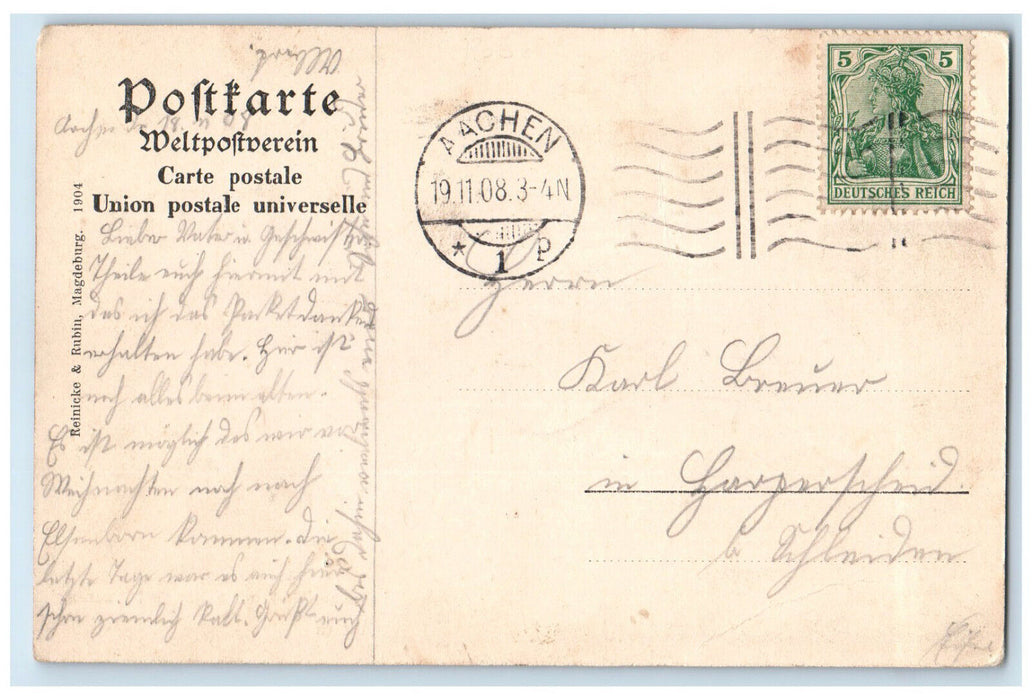 Postkarte
Weltpostverein
Carte postale
Union postale universelle
Reinicke & Rubin, Magdeburg. 1904
Lieber Vater u. Geschwister
Theile euch hiermit mit
das ich das Packet dankend
erhalten habe. Hier ist
noch alles beim alten.
Es ist möglich das wir vor
Weihnachten noch nach
Elsenborn kommen. Die
letzte Tage war es auch hier
schon ziemlich kalt. Grüßt euch
AACHEN
19.11.08.3-4N
* 1 p
5 5
DEUTSCHES REICH
Herrn
Karl Breuer
in Harperscheid.
b Schleiden
Eifel